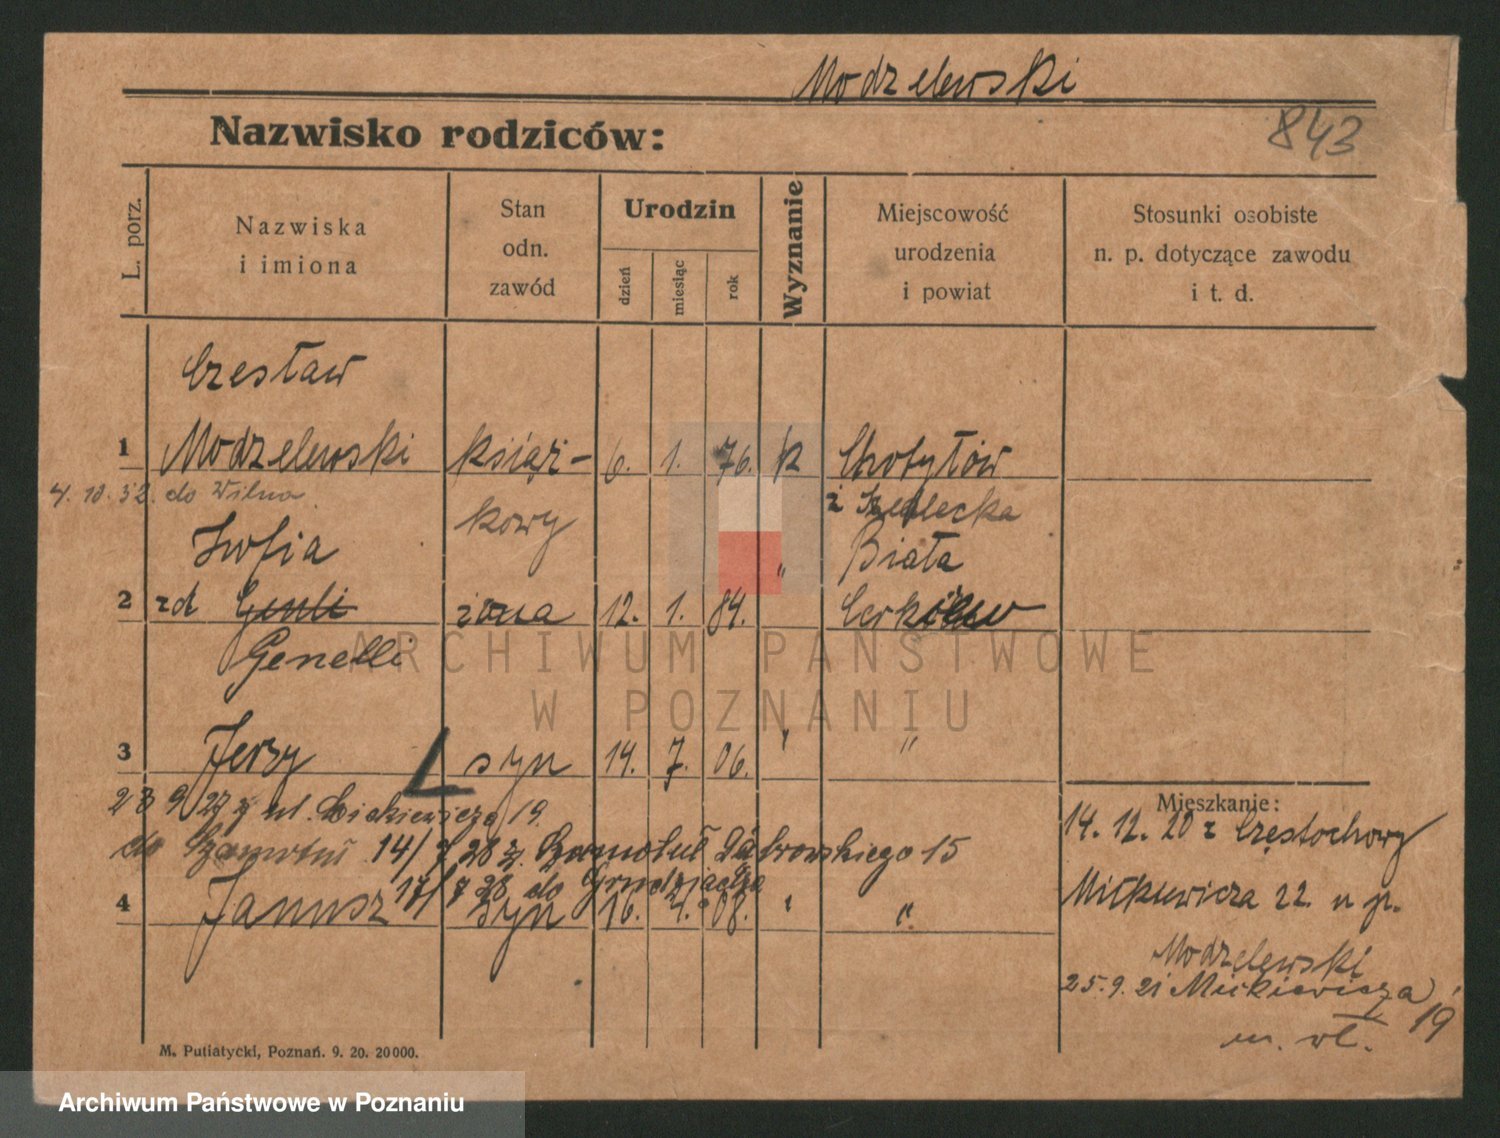 Modzelewski
Nazwisko rodziców:
843
L. porz.
Nazwiska
i imiona
Stan
odn.
zawód
Urodzin
dzień
miesiąc
rok
Wyznanie
Miejscowość
urodzenia
i powiat
Stosunki osobiste
n. p. dotyczące zawodu
i t. d.
Czesław
1 Modzelewski książ- 6. 1. 76. k Chotyłów
4. 10. 32. do Wilna
kowy
z Siedlecka
Zofia
Biała
2 zd Genli żona 12. 1. 84. "
Genelli
ARCHIWUM PAŃSTWOWE
W POZNANIU
3 Jerzy syn 14. 7. 06. " "
Mieszkanie:
23 9 27 z ul. Mickiewicza 19.
14. 12. 20 z Częstochowy
do Szamotuł 14/7 28 z Szamotuł Dąbrowskiego 15
17/7 28 do Grudziądza
Mickiewicza 22. u p.
4 Janusz syn 16. 4. 08. " "
Modzelewski
25. 9. 21 Mickiewicza 19
m. wł.
M. Putiatycki, Poznań. 9. 20. 20000.
Archiwum Państwowe w Poznaniu